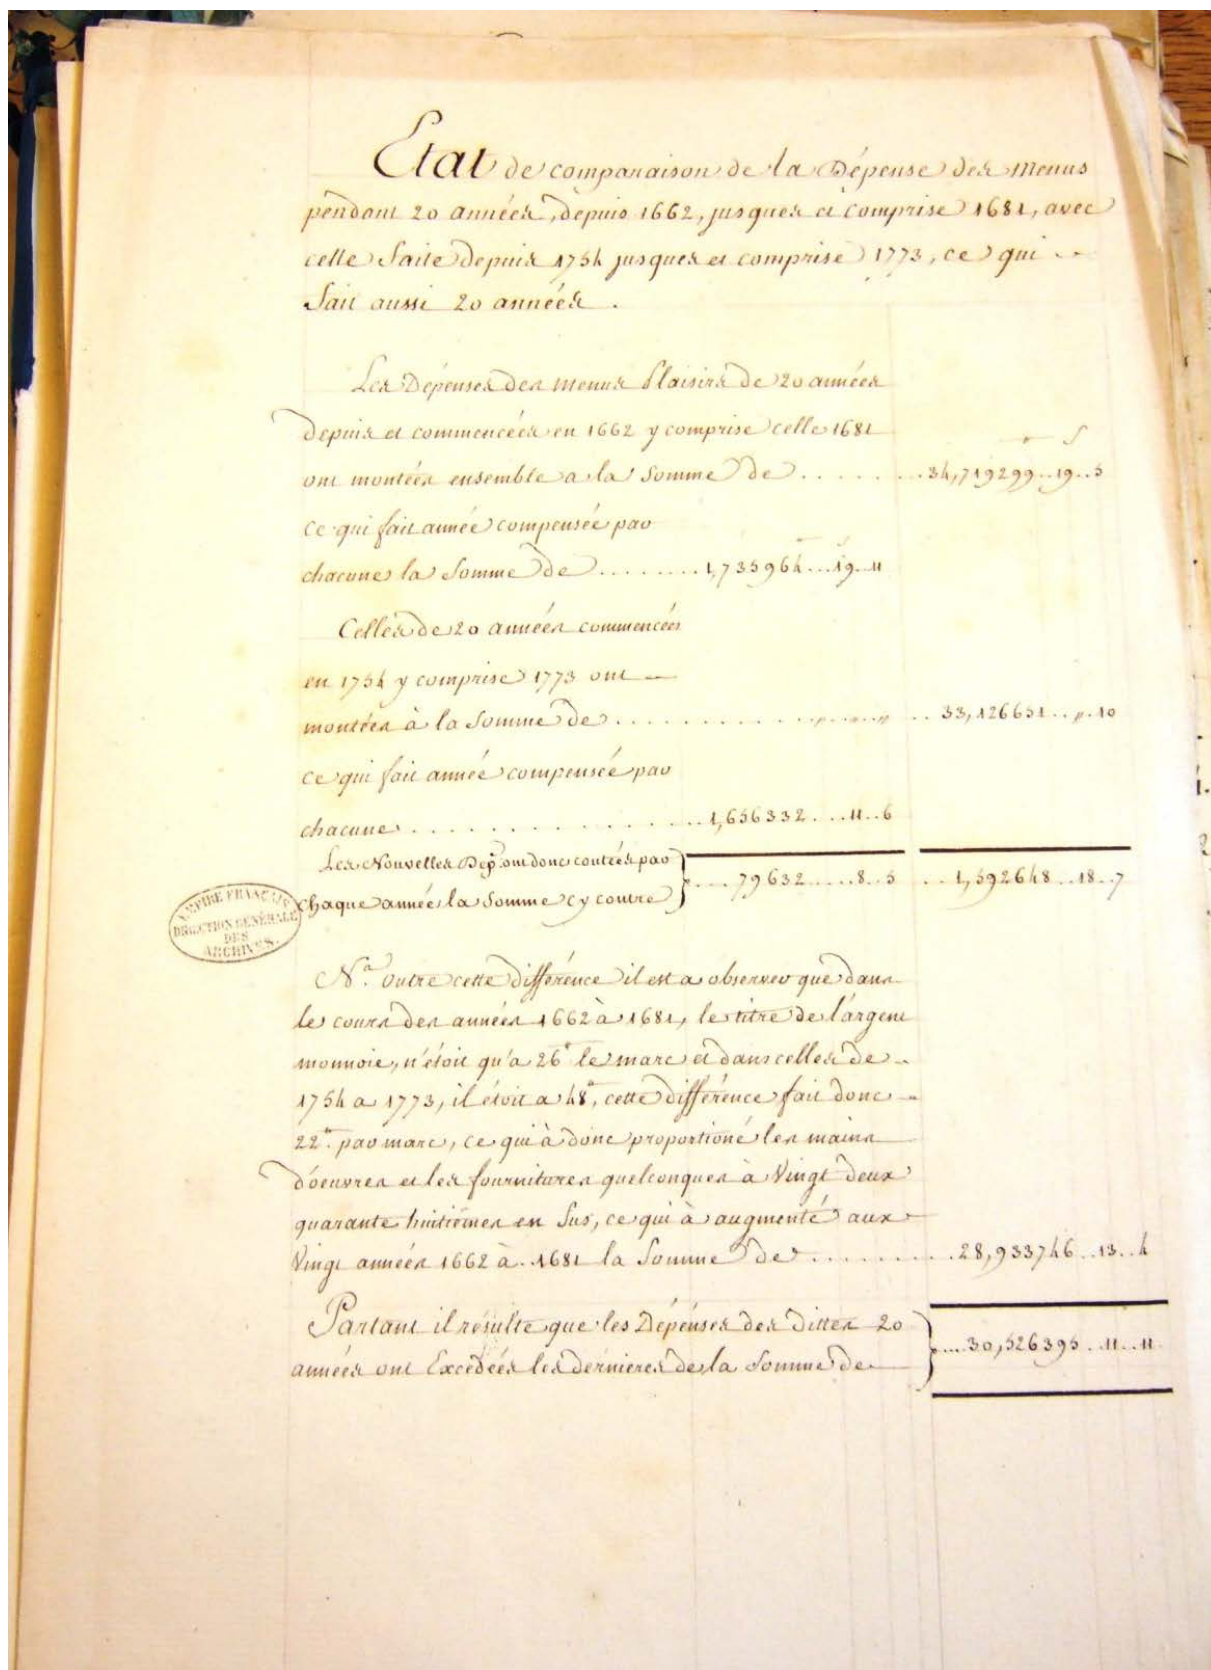 Etat de comparaison de la Dépense des Menus
pendant 20 années, depuis 1662, jusques et comprise 1681, avec
celle faite depuis 1754 jusques et comprise 1773, ce qui
fait aussi 20 années.
Les Dépenses des menus Plaisirs de 20 années
depuis et commencées en 1662 y comprise celle 1681
ont montées ensemble a la Somme de ........ 34,719299..19..5
ce qui fait année compensée par
chacune la Somme de ........ 1,735964...19..11
Celles de 20 années commencées
en 1754 y comprise 1773 ont
montées à la Somme de ............ 33,126651..〃..10
ce qui fait année compensée par
chacune ............ 1,656332....11..6
Les Nouvelles Dep.es ont donc coutées par
chaque année la Somme cy contre } ....79632.....8..5 ..1,592648..18..7
EMPIRE FRANÇAIS
DIRECTION GÉNÉRALE
DES
ARCHIVES.
N.a Outre cette différence il est a observer que dans
le cours des années 1662 à 1681, le titre de l'argent
monnoie, n'étoit qu'a 26# le marc et dans celles de
1754 a 1773, il étoit a 48#, cette différence fait donc
22# par marc, ce qui à donc proportioné les mains
d'oeuvres et les fournitures quelconques à Vingt deux
quarante huitièmes en Sus, ce qui à augmenté aux
Vingt années 1662 à 1681 la Somme de ........ 28,933746..13..4
Partant il résulte que les Dépenses des dittes 20
années ont Excédées les dernieres de la Somme de } ....30,526395..11..11